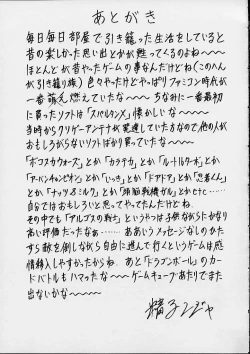 あとがき
毎日毎日部屋で引き籠った生活をしていると
昔の楽しかった思い出とかが甦ってくるのよね〜〜〜
ほとんどが昔やったゲームの事なんだけどね(このへん
が引き籠り族)色々やったけどやっぱりファミコン時代が
一番萌え燃えていたな〜〜 ちなみに一番最初
に買ったソフトは「スパルタンX」懐かしいな〜〜〜
当時からクソゲーアンテナが発達していたようなので他の人が
おもしろがらないソフトばかり買っていたな〜〜〜
「ボコスカウォーズ」とか「カラテカ」とか「ルート16ターボ」とか
「アーバンチャンピオン」とか「いっき」とか「ドアドア」とか「忍者くん」
とか「ナッツ&ミルク」とか「頭脳戦艦ガル」とかetc……
自分ではおもしろいと思ってやってたんだけどね。
その中でも「アルゴスの戦士」というやつは子供ながらにかなり
高い評価だったなぁ…… ああいうメッセージなしのかた
すら敵を倒しながら自由に進んで行くというゲームは感
情移入しやすかったからね。あと「ドラゴンボール」のカー
ドバトルもハマったな〜〜 ゲームキューブあたりでまた
出ないかな〜〜〜